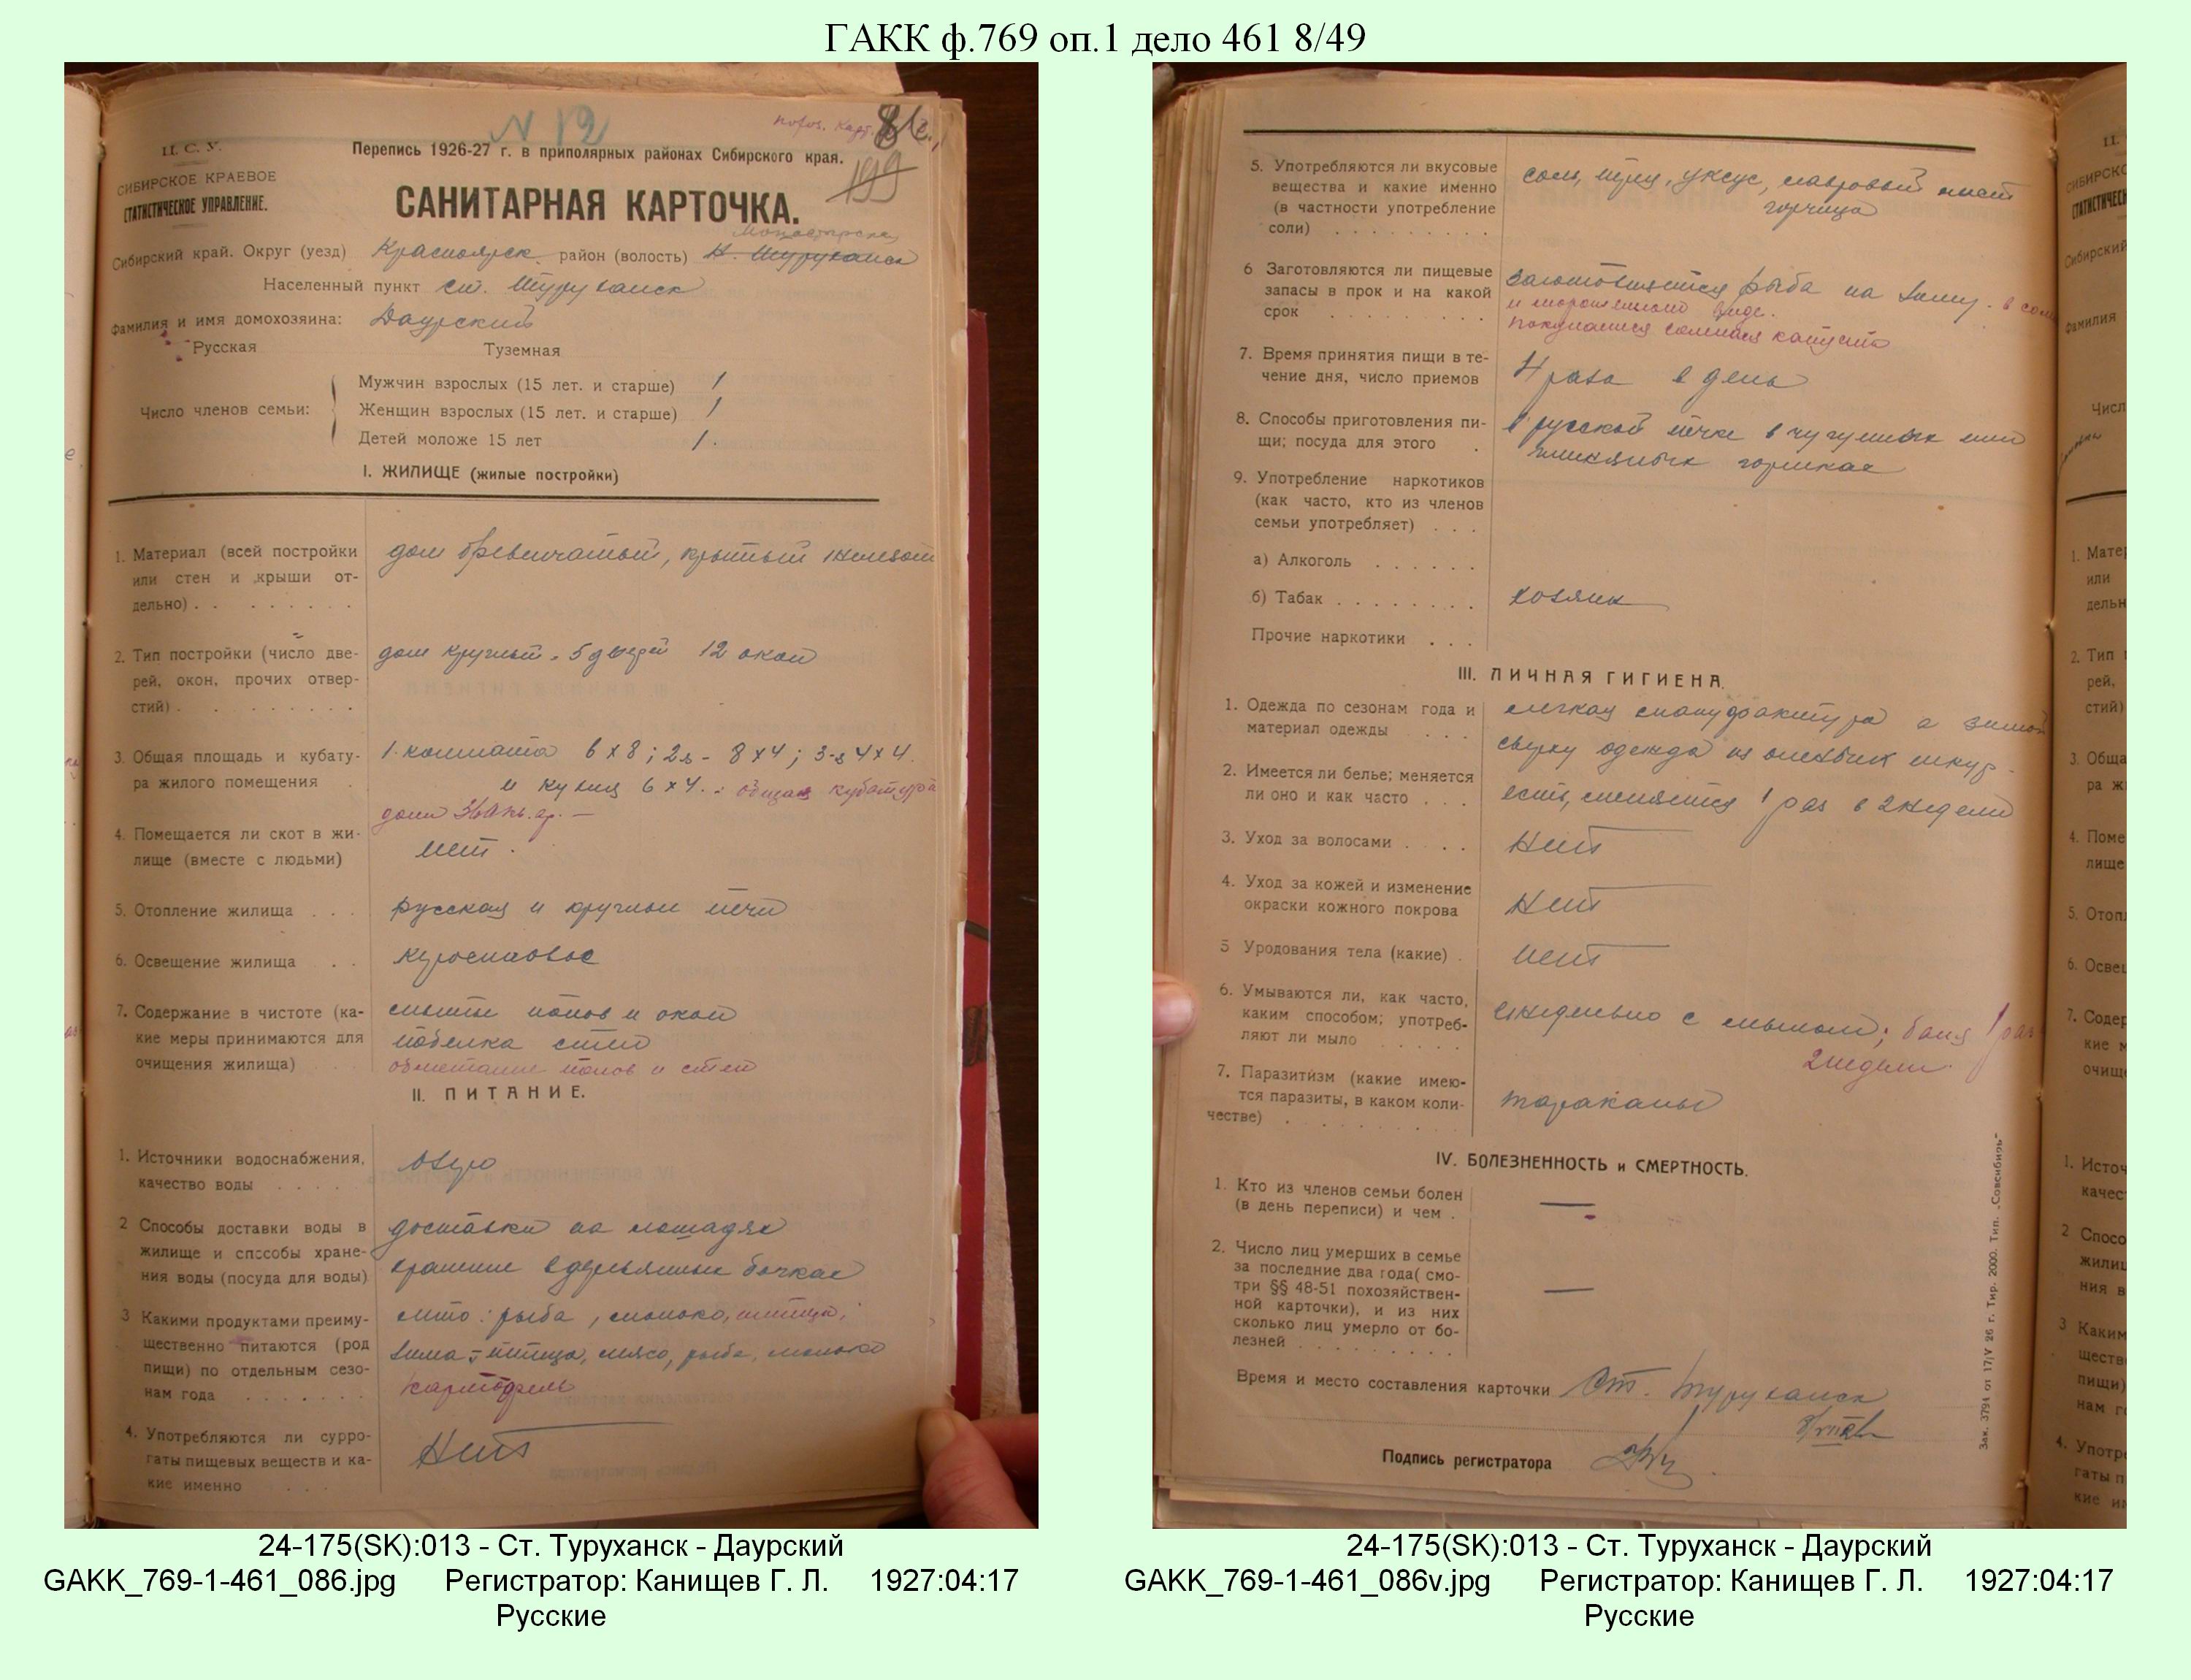 ГАКК ф.769 оп.1 дело 461 8/49
N 12
похоз. карт.
199
Ц. С. У.
СИБИРСКОЕ КРАЕВОЕ
СТАТИСТИЧЕСКОЕ УПРАВЛЕНИЕ.
Перепись 1926-27 г. в приполярных районах Сибирского края.
САНИТАРНАЯ КАРТОЧКА.
Сибирский край. Округ (уезд) Красноярск район (волость) Н. Туруханск
Населенный пункт ст. Туруханск
Фамилия и имя домохозяина: Даурский
Русская Туземная
Число членов семьи:
Мужчин взрослых (15 лет. и старше) 1
Женщин взрослых (15 лет. и старше) 1
Детей моложе 15 лет 1.
I. ЖИЛИЩЕ (жилые постройки)
1. Материал (всей постройки
или стен и крыши от-
дельно) . . . . . . . .
дом бревенчатый, крытый
2. Тип постройки (число две-
рей, окон, прочих отвер-
стий) . . . . . . . .
дом круглый. 5 дверей 12 окон
3. Общая площадь и кубату-
ра жилого помещения .
1. комната 6х8; 2я - 8х4; 3-я 4х4.
и кухня 6х4. общая кубатура
дома
4. Помещается ли скот в жи-
лище (вместе с людьми)
нет.
5. Отопление жилища . . .
русская и круглые печи
6. Освещение жилища . .
керосиновое
7. Содержание в чистоте (ка-
кие меры принимаются для
очищения жилища)
мытье полов и окон
побелка стен
обметание полов и стен
II. ПИТАНИЕ.
1. Источники водоснабжения,
качество воды . . . . .
озеро
2 Способы доставки воды в
жилище и способы хране-
ния воды (посуда для воды)
доставка на лошадях
хранение в деревянных бочках
3 Какими продуктами преиму-
щественно питаются (род
пищи) по отдельным сезо-
нам года . . . . . . .
лето: рыба, молоко, птица,
зима - птица, мясо, рыба, молоко
картофель
4. Употребляются ли сурро-
гаты пищевых веществ и ка-
кие именно . . . .
Нет
24-175(SK):013 - Ст. Туруханск - Даурский
GAKK_769-1-461_086.jpg Регистратор: Канищев Г. Л. 1927:04:17
Русские
5. Употребляются ли вкусовые
вещества и какие именно
(в частности употребление
соли) . . . . . . . . .
соль, перец, уксус, лавровый лист
горчица
6 Заготовляются ли пищевые
запасы в прок и на какой
срок . . . . . . . .
заготовляется рыба на зиму. в сол
и мороженном виде.
покупается соленая капуста
7. Время принятия пищи в те-
чение дня, число приемов
4 раза в день
8. Способы приготовления пи-
щи; посуда для этого .
в русской печке в чугунных или
глиняных горшках
9. Употребление наркотиков
(как часто, кто из членов
семьи употребляет) . . .
а) Алкоголь . . . . . .
б) Табак . . . . . . . .
хозяин
Прочие наркотики . . .
III. ЛИЧНАЯ ГИГИЕНА.
1. Одежда по сезонам года и
материал одежды . . . .
легкая мануфактура а зимой
сверху одежда из оленьих шкур.
2. Имеется ли белье; меняется
ли оно и как часто . . .
есть, меняется 1 раз в 2 недели
3. Уход за волосами . . . .
Нет
4. Уход за кожей и изменение
окраски кожного покрова
Нет
5 Уродования тела (какие) .
нет
6. Умываются ли, как часто,
каким способом; употреб-
ляют ли мыло . . . . .
ежедневно с мылом; баня 1 раз
2 недели.
7. Паразитизм (какие имею-
тся паразиты, в каком коли-
честве) . . . . . . . . .
тараканы
IV. БОЛЕЗНЕННОСТЬ и СМЕРТНОСТЬ.
1. Кто из членов семьи болен
(в день переписи) и чем .
—
2. Число лиц умерших в семье
за последние два года( смо-
три §§ 48-51 похозяйствен-
ной карточки), и из них
сколько лиц умерло от бо-
лезней . . . . . . . . .
—
Время и место составления карточки Ст. Туруханск
Подпись регистратора
Зак. 3794 от 17/V 26 г. Тир. 2000. Тип. „Совсибирь"
24-175(SK):013 - Ст. Туруханск - Даурский
GAKK_769-1-461_086v.jpg Регистратор: Канищев Г. Л. 1927:04:17
Русские